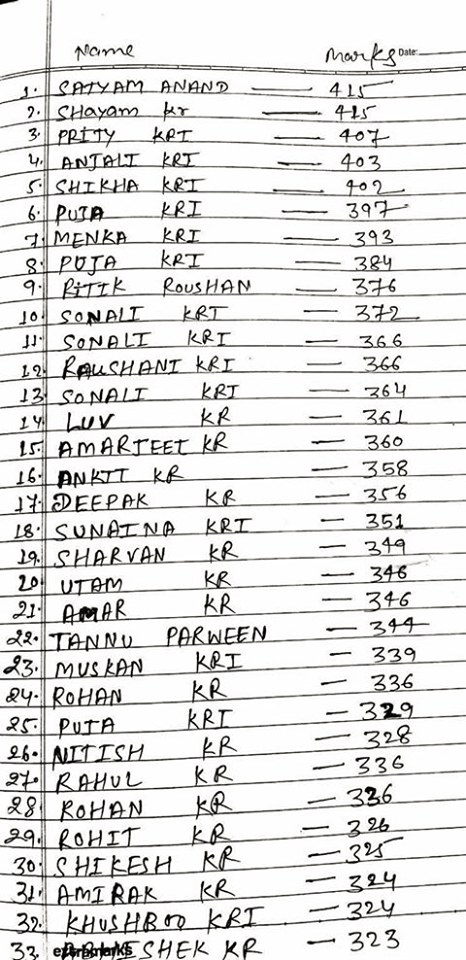 Name Marks Date:
1. SATYAM ANAND — 415
2. SHayam kr — 415
3. PRITY KRI — 407
4. ANJALI KRI — 403
5. SHIKHA KRI — 402
6. PUJA KRI — 397
7. MENKA KRI — 393
8. PUJA KRI — 384
9. RITIK ROUSHAN — 376
10. SONALI KRI — 372
11. SONALI KRI — 366
12. RAUSHANI KRI — 366
13. SONALI KRI — 364
14. LUV KR — 361
15. AMARJEET KR — 360
16. ANKIT KR — 358
17. DEEPAK KR — 356
18. SUNAINA KRI — 351
19. SHARVAN KR — 349
20. UTAM KR — 346
21. AMAR KR — 346
22. TANNU PARWEEN — 344
23. MUSKAN KRI — 339
24. ROHAN KR — 336
25. PUJA KRI — 329
26. NITISH KR — 328
27. RAHUL KR — 336
28. ROHAN KR — 336
29. ROHIT KR — 326
30. SHIKESH KR — 325
31. AMIRAK KR — 324
32. KHUSHBOO KRI — 324
33. KR — 323